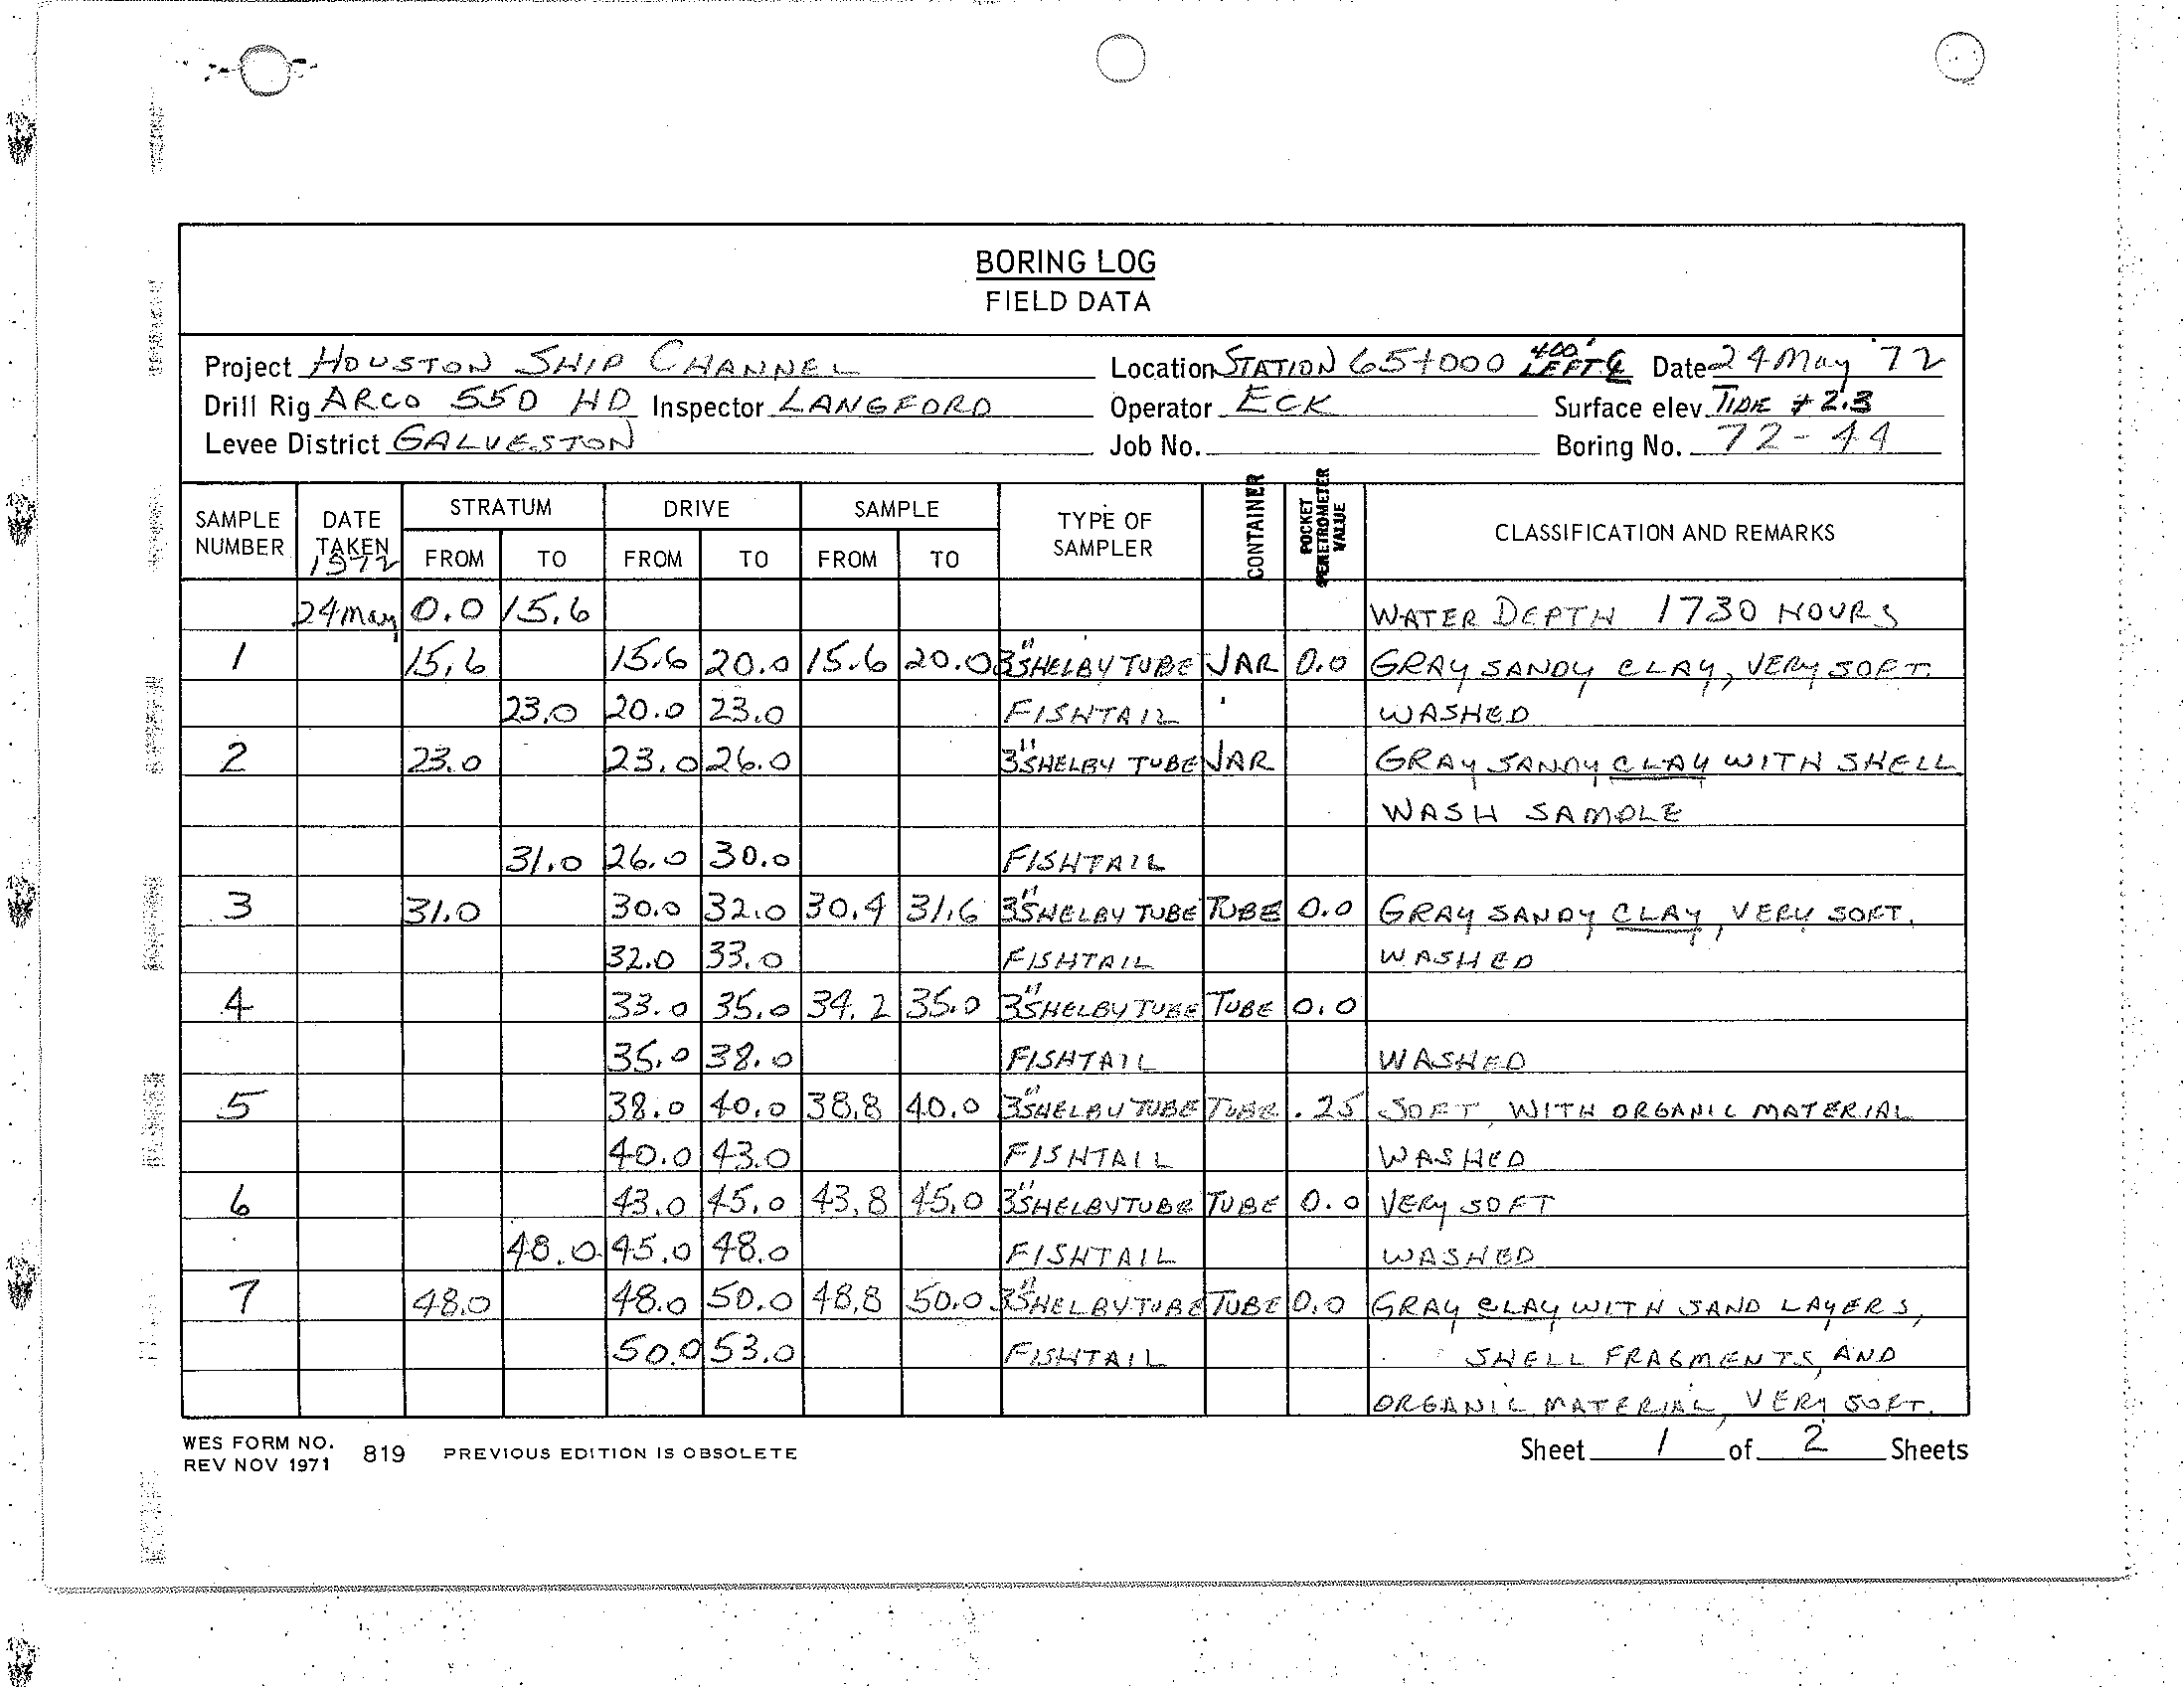 BORING LOG
FIELD DATA
Project HOUSTON SHIP CHANNEL Location STATION 65+000 400' LEFT ℄ Date 24 May '72
Drill Rig ARCO 550 HD Inspector LANGFORD Operator ECK Surface elev. TIDE +2.3
Levee District GALVESTON Job No. Boring No. 72-44
SAMPLE NUMBER DATE TAKEN 1972 STRATUM FROM TO DRIVE FROM TO SAMPLE FROM TO TYPE OF SAMPLER CONTAINER POCKET PENETROMETER VALUE CLASSIFICATION AND REMARKS
24 May 0.0 15.6 WATER DEPTH 1730 HOURS
1 15.6 15.6 20.0 15.6 20.0 3" SHELBY TUBE JAR 0.0 GRAY SANDY CLAY, VERY SOFT.
23.0 20.0 23.0 FISHTAIL WASHED
2 23.0 23.0 26.0 3" SHELBY TUBE JAR GRAY SANDY CLAY WITH SHELL
WASH SAMPLE
31.0 26.0 30.0 FISHTAIL
3 31.0 30.0 32.0 30.4 31.6 3" SHELBY TUBE TUBE 0.0 GRAY SANDY CLAY, VERY SOFT.
32.0 33.0 FISHTAIL WASHED
4 33.0 35.0 34.2 35.0 3" SHELBY TUBE TUBE 0.0
35.0 38.0 FISHTAIL WASHED
5 38.0 40.0 38.8 40.0 3" SHELBY TUBE TUBE .25 SOFT, WITH ORGANIC MATERIAL
40.0 43.0 FISHTAIL WASHED
6 43.0 45.0 43.8 45.0 3" SHELBY TUBE TUBE 0.0 VERY SOFT
48.0 45.0 48.0 FISHTAIL WASHED
7 48.0 48.0 50.0 48.8 50.0 3" SHELBY TUBE TUBE 0.0 GRAY CLAY WITH SAND LAYERS,
50.0 53.0 FISHTAIL SHELL FRAGMENTS, AND
ORGANIC MATERIAL, VERY SOFT.
WES FORM NO. 819 PREVIOUS EDITION IS OBSOLETE Sheet 1 of 2 Sheets
REV NOV 1971